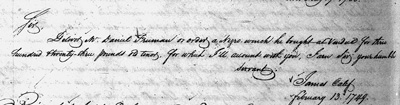 Sir
Deliver Mr. Daniel Truman or order, a Negro which he bought at Vendue for three
hundred & twenty three pounds old tenor, for which I'll account with you, I am Sir your humble
Servant
James
February 13th. 1749.